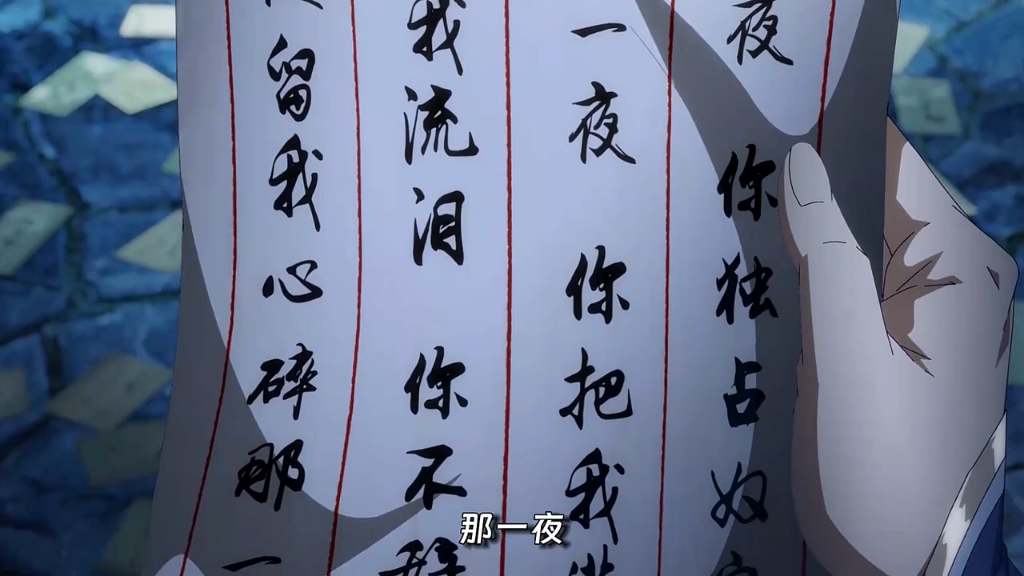 夜 你独占奴
一夜 你把我
我流泪 你不
留我心碎那一
那一夜